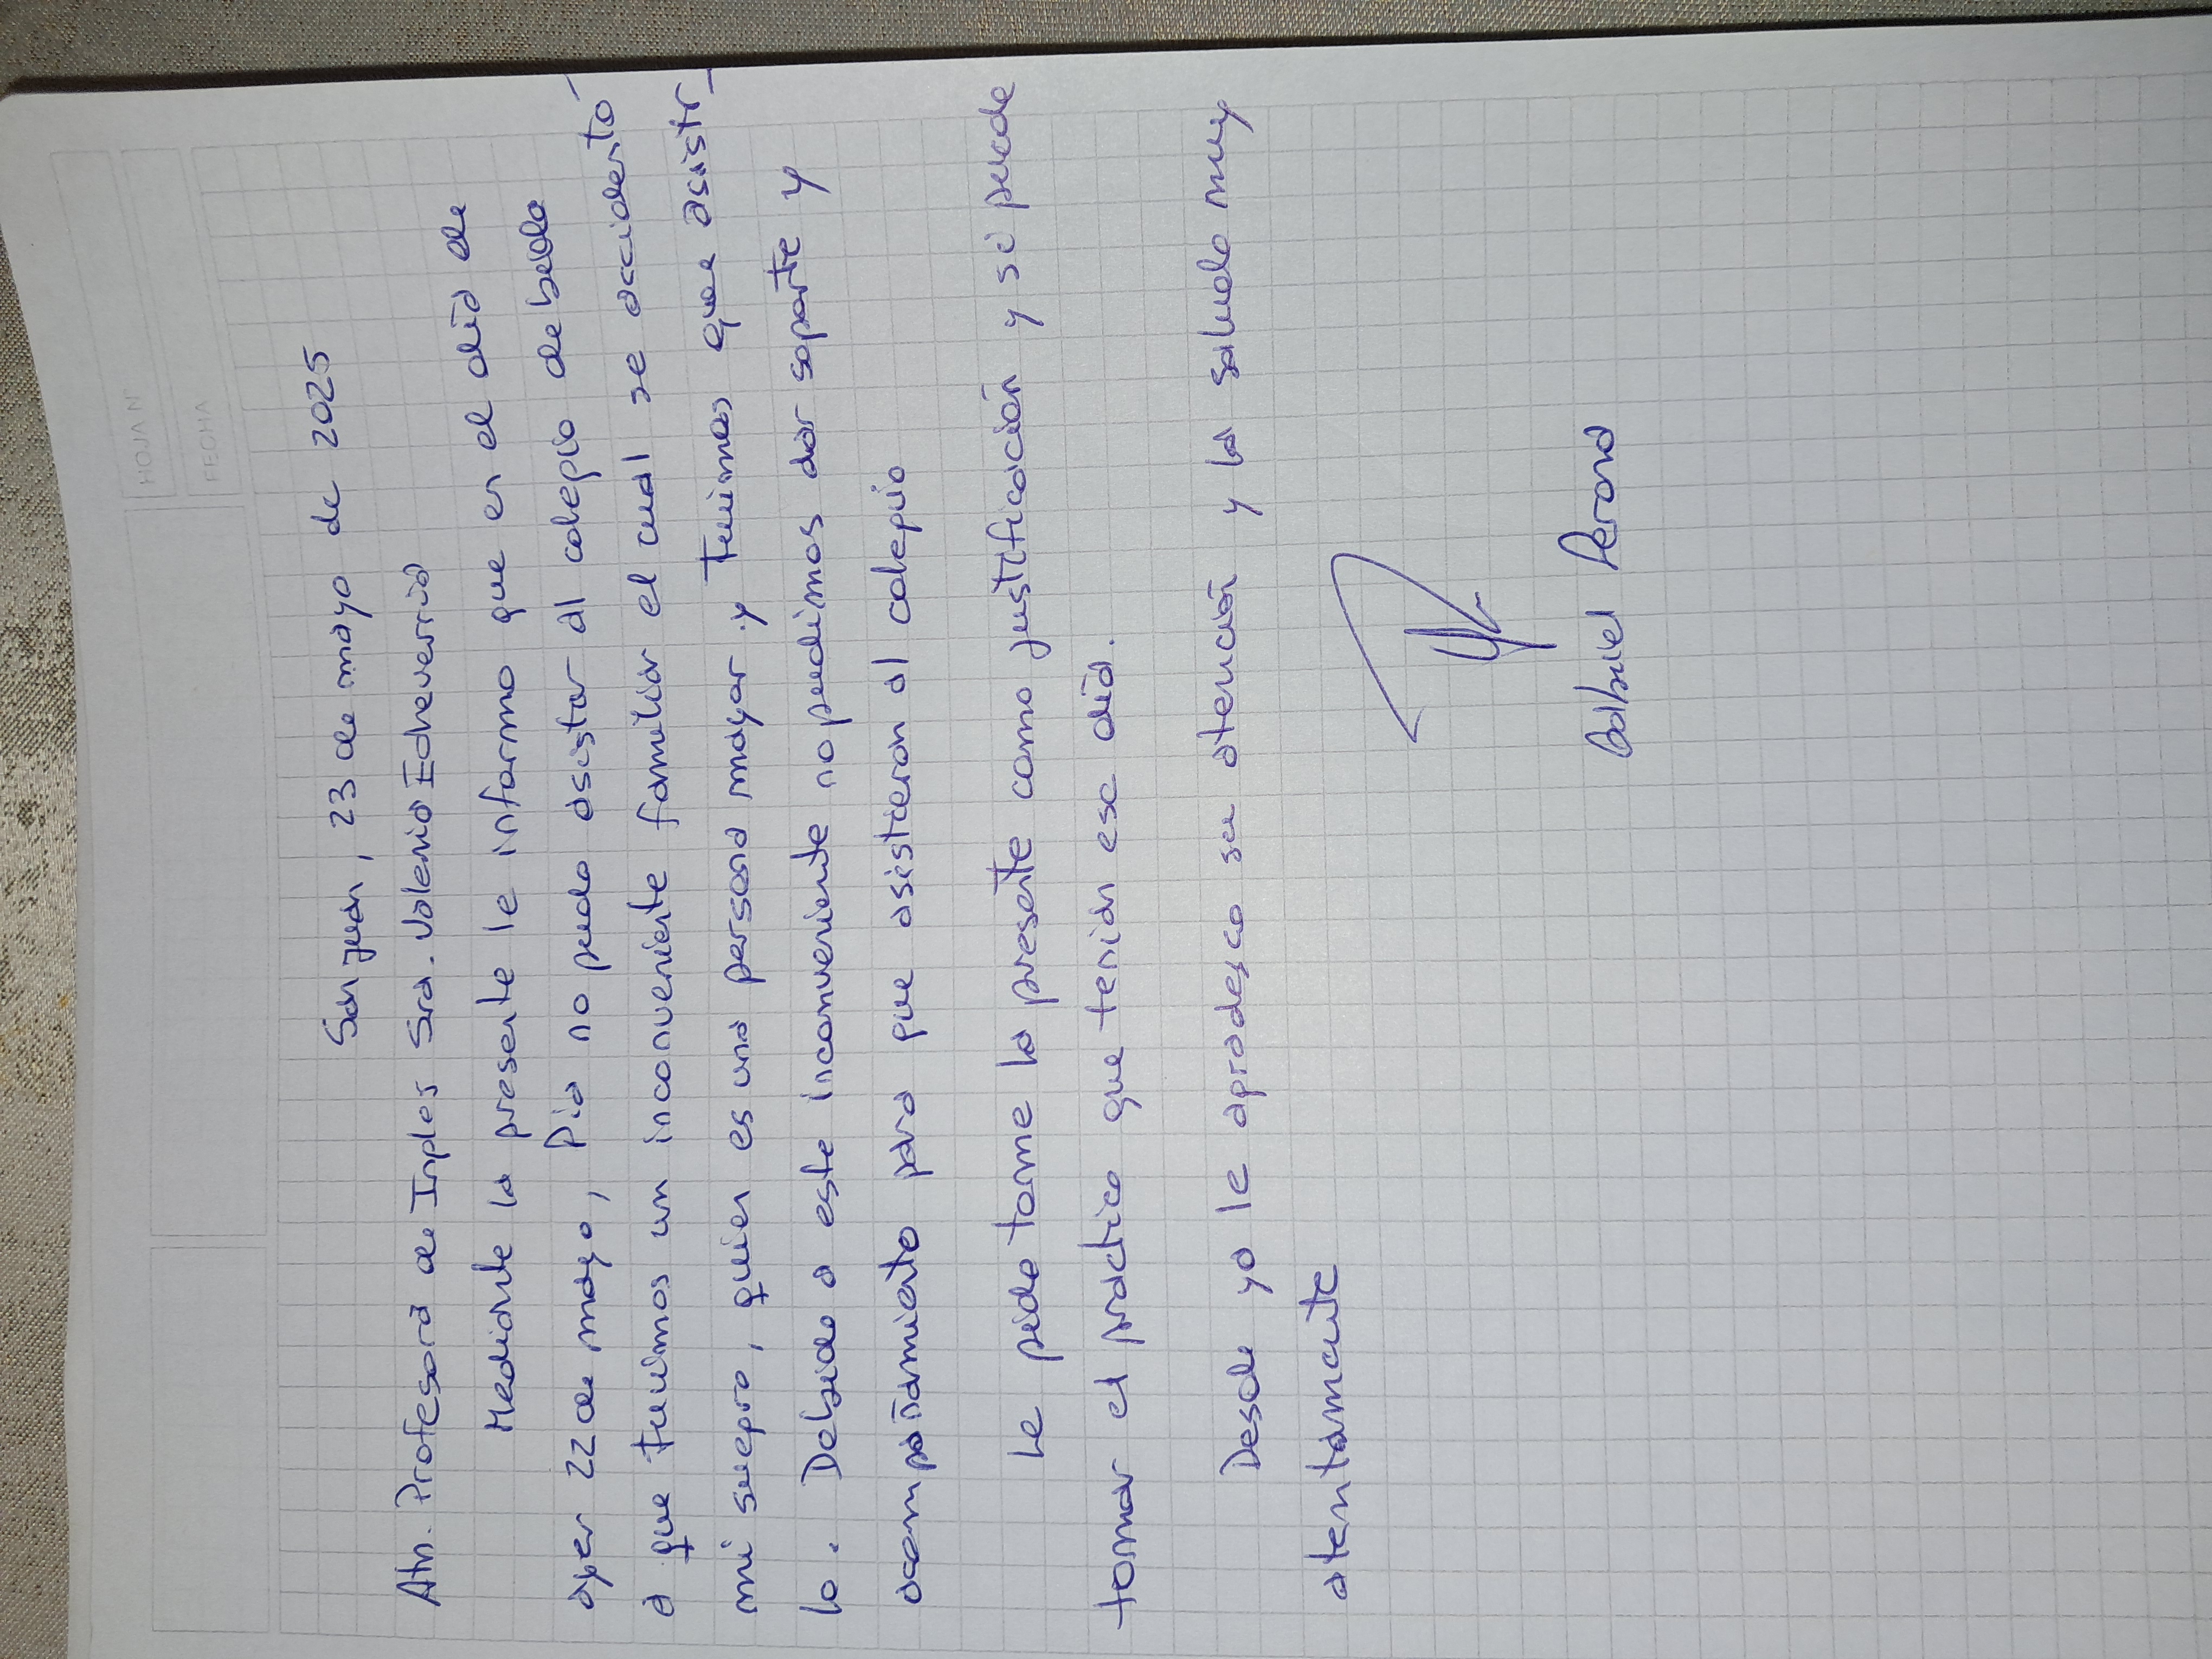 HOJA N°
FECHA
San Juan, 23 de mayo de 2025
Atn. Profesora de Ingles Sra. Valeria Echeverria
Mediante la presente le informo que en el día de
ayer 22 de mayo, Pia no pudo asistir al colegio debido
a que tuvimos un inconveniente familiar el cual se accidentó
mi suegro, quien es una persona mayor y tuvimos que asistir
lo. Debido a este inconveniente no pudimos dar soporte y
acompañamiento para que asistieran al colegio
Le pido tome la presente como justificación y si puede
tomar el practico que tenían ese día.
Desde ya le agradesco su atención y la saludo muy
atentamente
Gabriel Perona